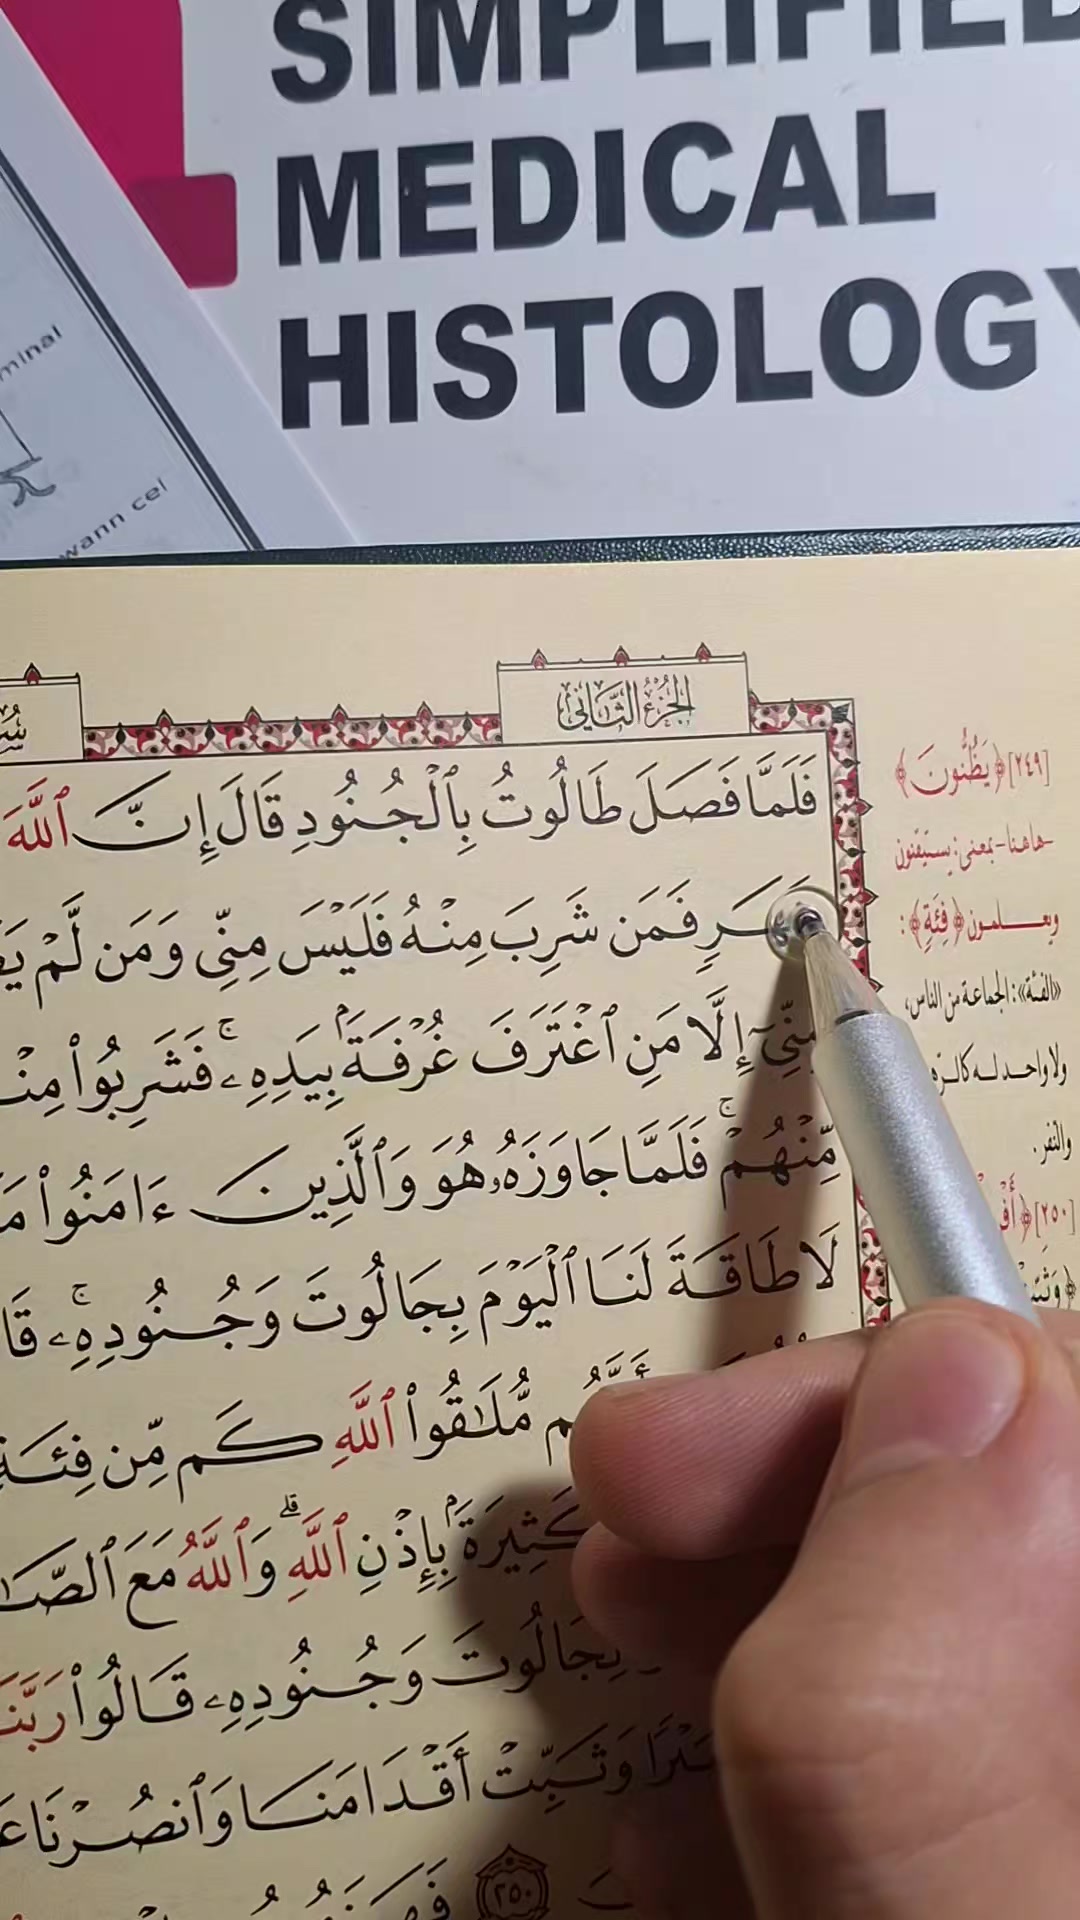 SIMPLIFIED
MEDICAL
HISTOLOGY
minal
wann cel
الجزء الثاني
فَلَمَّا فَصَلَ طَالُوتُ بِٱلْجُنُودِ قَالَ إِنَّ ٱللَّهَ
فَمَن شَرِبَ مِنْهُ فَلَيْسَ مِنِّي وَمَن لَّمْ
مِنِّيٓ إِلَّا مَنِ ٱغْتَرَفَ غُرْفَةَۢ بِيَدِهِۦۚ فَشَرِبُواْ
مِّنْهُمْۚ فَلَمَّا جَاوَزَهُۥ هُوَ وَٱلَّذِينَ ءَامَنُواْ
لَا طَاقَةَ لَنَا ٱلْيَوْمَ بِجَالُوتَ وَجُنُودِهِۦۚ
مُّلَٰقُواْ ٱللَّهِ كَم مِّن فِئَةٍ
كَثِيرَةَۢ بِإِذْنِ ٱللَّهِۗ وَٱللَّهُ مَعَ
بِجَالُوتَ وَجُنُودِهِۦ قَالُواْ رَبَّنَآ
وَثَبِّتْ أَقْدَامَنَا وَٱنصُرْنَا
٢٥٠
[٢٤٩] ﴿يَظُنُّونَ﴾
-هاهنا- بمعنى: يستيقنون
ويعلمون ﴿فِئَةٍ﴾:
«الفئة»: الجماعة من الناس،
ولا واحد له
والنفر.
[٢٥٠]